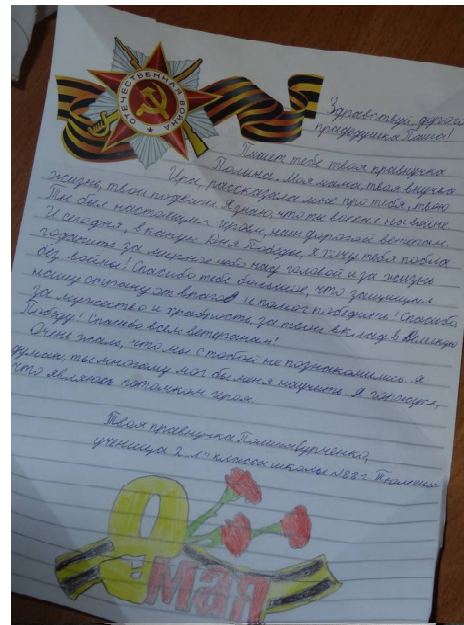 ОТЕЧЕСТВЕННАЯ ВОЙНА
Здравствуй, дорогой
прадедушка Паша!
Пишет тебе твоя правнучка
Полина. Моя мама, твоя внучка
Ира, рассказала мне про тебя, твою
жизнь, твои подвиги. Я знаю, что ты воевал на войне.
Ты был настоящим героем, наш дорогой ветеран.
И сегодня, в канун Дня Победы, я хочу тебя поблаго-
годарить за мирное небо над головой и за жизнь
без войны! Спасибо тебе большое, что защищал
нашу страну от врагов и помог победить! Спасибо
за мужество и храбрость, за твой вклад в Великую
Победу! Спасибо всем ветеранам!
Очень жаль, что мы с тобой не познакомились. Я
думаю, ты многому мог бы меня научить. Я горжусь,
что являюсь потомком героя.
Твоя правнучка Полина Бурченко,
ученица 2 "Л" класса школы №88 г. Тюмени
9
МАЯ